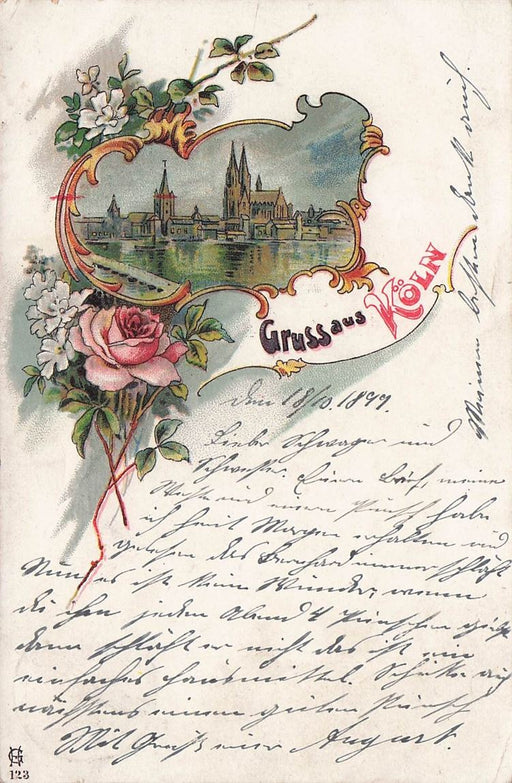 Gruss aus Köln
den 18/10. 1899.
Lieber Schwager und
Schwester Euren Brief, meine
und einen Punsch habe
ich heut Morgen erhalten und
gelesen das Bernhard immer schläft
Nun es ist kein Wunder, wenn
die ihm jeden Abend 4 Pünschen
dann schläft er nicht das ist ein
einfaches Hausmittel. Schicke auch
nächstens einen guten Punsch
Mit Gruß euer August.
Meinen besten Dank auch.
123